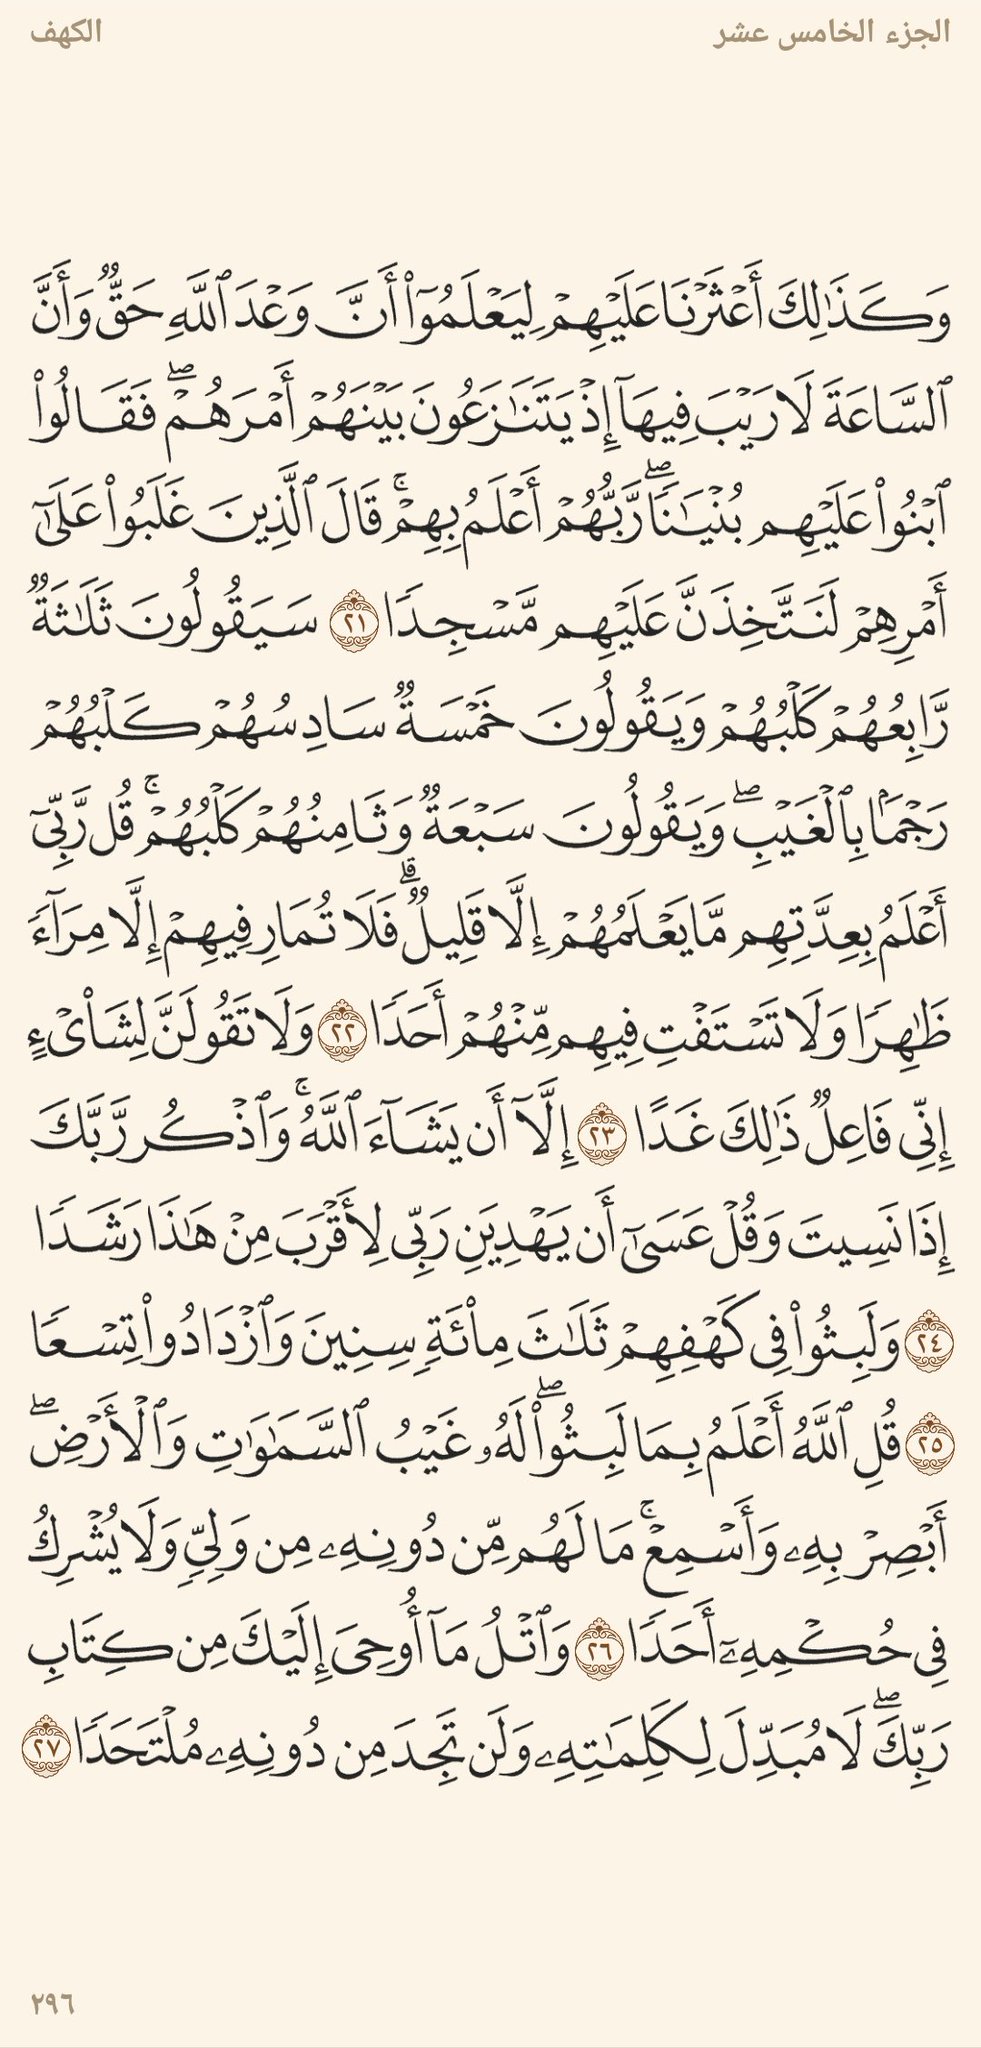 الجزء الخامس عشر
الكهف
وَكَذَٰلِكَ أَعۡثَرۡنَا عَلَيۡهِمۡ لِيَعۡلَمُوٓاْ أَنَّ وَعۡدَ ٱللَّهِ حَقّٞ وَأَنَّ
ٱلسَّاعَةَ لَا رَيۡبَ فِيهَآ إِذۡ يَتَنَٰزَعُونَ بَيۡنَهُمۡ أَمۡرَهُمۡۖ فَقَالُواْ
ٱبۡنُواْ عَلَيۡهِم بُنۡيَٰنٗاۖ رَّبُّهُمۡ أَعۡلَمُ بِهِمۡۚ قَالَ ٱلَّذِينَ غَلَبُواْ عَلَىٰٓ
أَمۡرِهِمۡ لَنَتَّخِذَنَّ عَلَيۡهِم مَّسۡجِدٗا ٢١ سَيَقُولُونَ ثَلَٰثَةٞ
رَّابِعُهُمۡ كَلۡبُهُمۡ وَيَقُولُونَ خَمۡسَةٞ سَادِسُهُمۡ كَلۡبُهُمۡ
رَجۡمَۢا بِٱلۡغَيۡبِۖ وَيَقُولُونَ سَبۡعَةٞ وَثَامِنُهُمۡ كَلۡبُهُمۡۚ قُل رَّبِّيٓ
أَعۡلَمُ بِعِدَّتِهِم مَّا يَعۡلَمُهُمۡ إِلَّا قَلِيلٞۗ فَلَا تُمَارِ فِيهِمۡ إِلَّا مِرَآءٗ
ظَٰهِرٗا وَلَا تَسۡتَفۡتِ فِيهِم مِّنۡهُمۡ أَحَدٗا ٢٢ وَلَا تَقُولَنَّ لِشَاْيۡءٍ
إِنِّي فَاعِلٞ ذَٰلِكَ غَدًا ٢٣ إِلَّآ أَن يَشَآءَ ٱللَّهُۚ وَٱذۡكُر رَّبَّكَ
إِذَا نَسِيتَ وَقُلۡ عَسَىٰٓ أَن يَهۡدِيَنِ رَبِّي لِأَقۡرَبَ مِنۡ هَٰذَا رَشَدٗا
٢٤ وَلَبِثُواْ فِي كَهۡفِهِمۡ ثَلَٰثَ مِاْئَةٖ سِنِينَ وَٱزۡدَادُواْ تِسۡعٗا
٢٥ قُلِ ٱللَّهُ أَعۡلَمُ بِمَا لَبِثُواْۖ لَهُۥ غَيۡبُ ٱلسَّمَٰوَٰتِ وَٱلۡأَرۡضِۖ
أَبۡصِرۡ بِهِۦ وَأَسۡمِعۡۚ مَا لَهُم مِّن دُونِهِۦ مِن وَلِيّٖ وَلَا يُشۡرِكُ
فِي حُكۡمِهِۦٓ أَحَدٗا ٢٦ وَٱتۡلُ مَآ أُوحِيَ إِلَيۡكَ مِن كِتَابِ
رَبِّكَۖ لَا مُبَدِّلَ لِكَلِمَٰتِهِۦ وَلَن تَجِدَ مِن دُونِهِۦ مُلۡتَحَدٗا ٢٧
٢٩٦